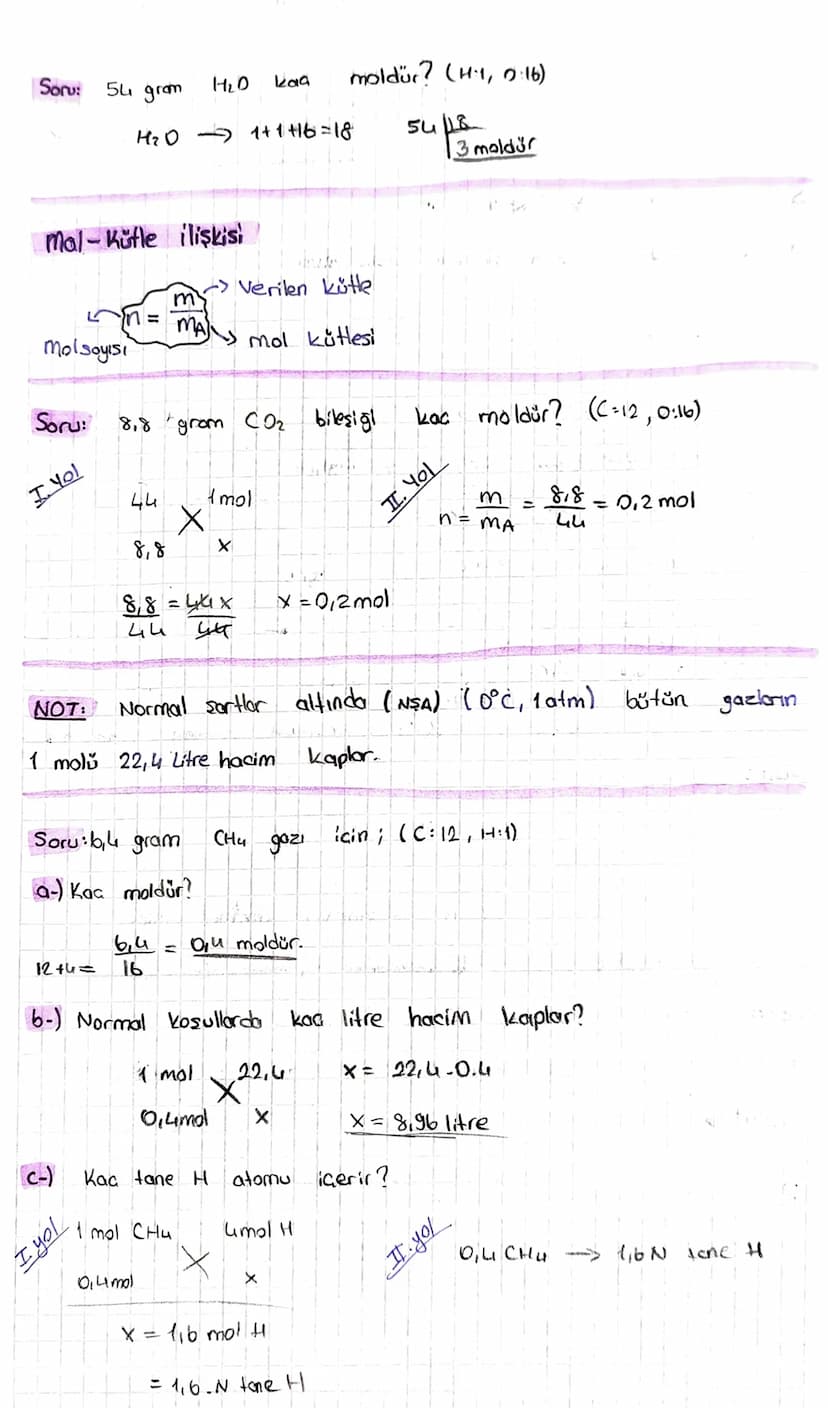 Soru: 54 gram H₂O kaç moldür? (H:1, O:16)
H₂O → 1+1+16=18 54 | 18
3 moldür
Mol-Kütle ilişkisi
n = m/mA
→ Verilen kütle
Mol sayısı
→ mol kütlesi
Soru: 8,8 gram CO₂ bileşiği kac moldür? (C=12, O:16)
I. yol
44 1 mol
8,8 x
8,8/44 = 44x/44 x = 0,2 mol
II. yol
n = m/mA = 8,8/44 = 0,2 mol
NOT: Normal şartlar altında (NŞA) (0°C, 1 atm) bütün gazların
1 molü 22,4 Litre hacim kaplar.
Soru: 6,4 gram CH₄ gazı için; (C:12, H:1)
a-) Kac moldür?
12+4= 6,4/16 = 0,4 moldür.
b-) Normal koşullarda kaç litre hacim kaplar?
1 mol 22,4 x = 22,4.0.4
0,4mol x x = 8,96 litre
c-) Kac tane H atomu içerir?
I. yol
1 mol CH₄ 4mol H
0,4mol x
x = 1,6 mol H
= 1,6.N tane H
II. yol
0,4 CH₄ → 1,6 N tane H